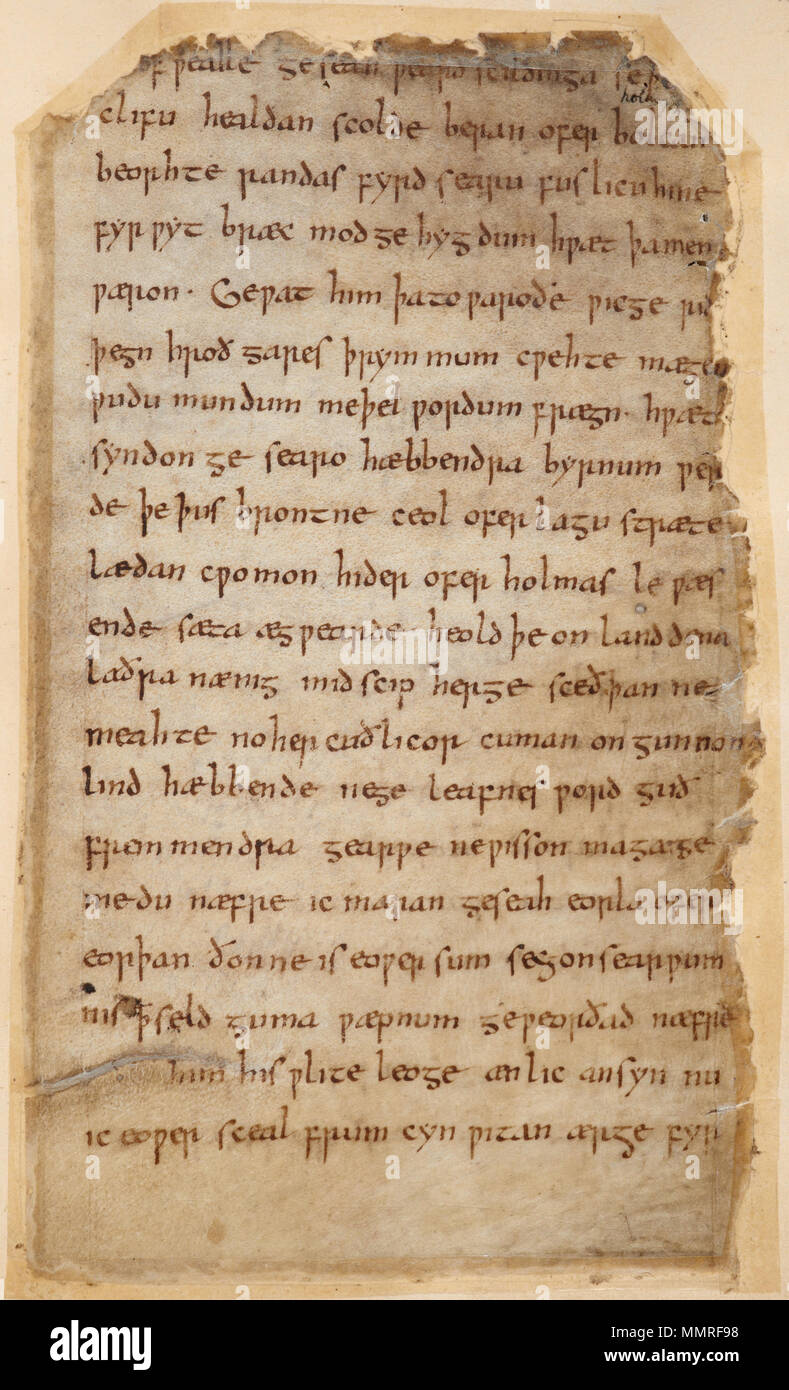 of ƿealle geseah ƿeard scildinga se
clifu healdan scolde beran ofer
beorhte randas fyrd searu fuslicu hine
fyrƿyt bræc modgehygdum hƿæt þa men
ƿæron. Geƿat him þa to ƿaroðe ƿicge
þegn hroðgares þrymmum cƿehte mægen
ƿudu mundum meþel ƿordum frægn. hƿæt
syndon ge searo hæbbendra byrnum ƿer
de þe þus brontne ceol ofer lagu stræte
lædan cƿomon hider ofer holmas le ƿæs
ende sæta ægƿearde heold þe on land dena
laðra nænig mid scip herge sceðþan ne
meahte no her cuðlicor cuman ongunnon
lind hæbbende ne ge leafnes ƿord guð
fremmendra gearƿe ne ƿisson maga ge
medu næfre ic maran geseah eorla ofer
eorþan ðonne is eoƿer sum secg on searƿum
nis ꝥ seld guma ƿæpnum geƿeorðad næfre
him his ƿlite leoge ænlic ansyn nu
ic eoƿer sceal frumcyn ƿitan ær ge fyr
alamy
Image ID: MMRF98
www.alamy.com